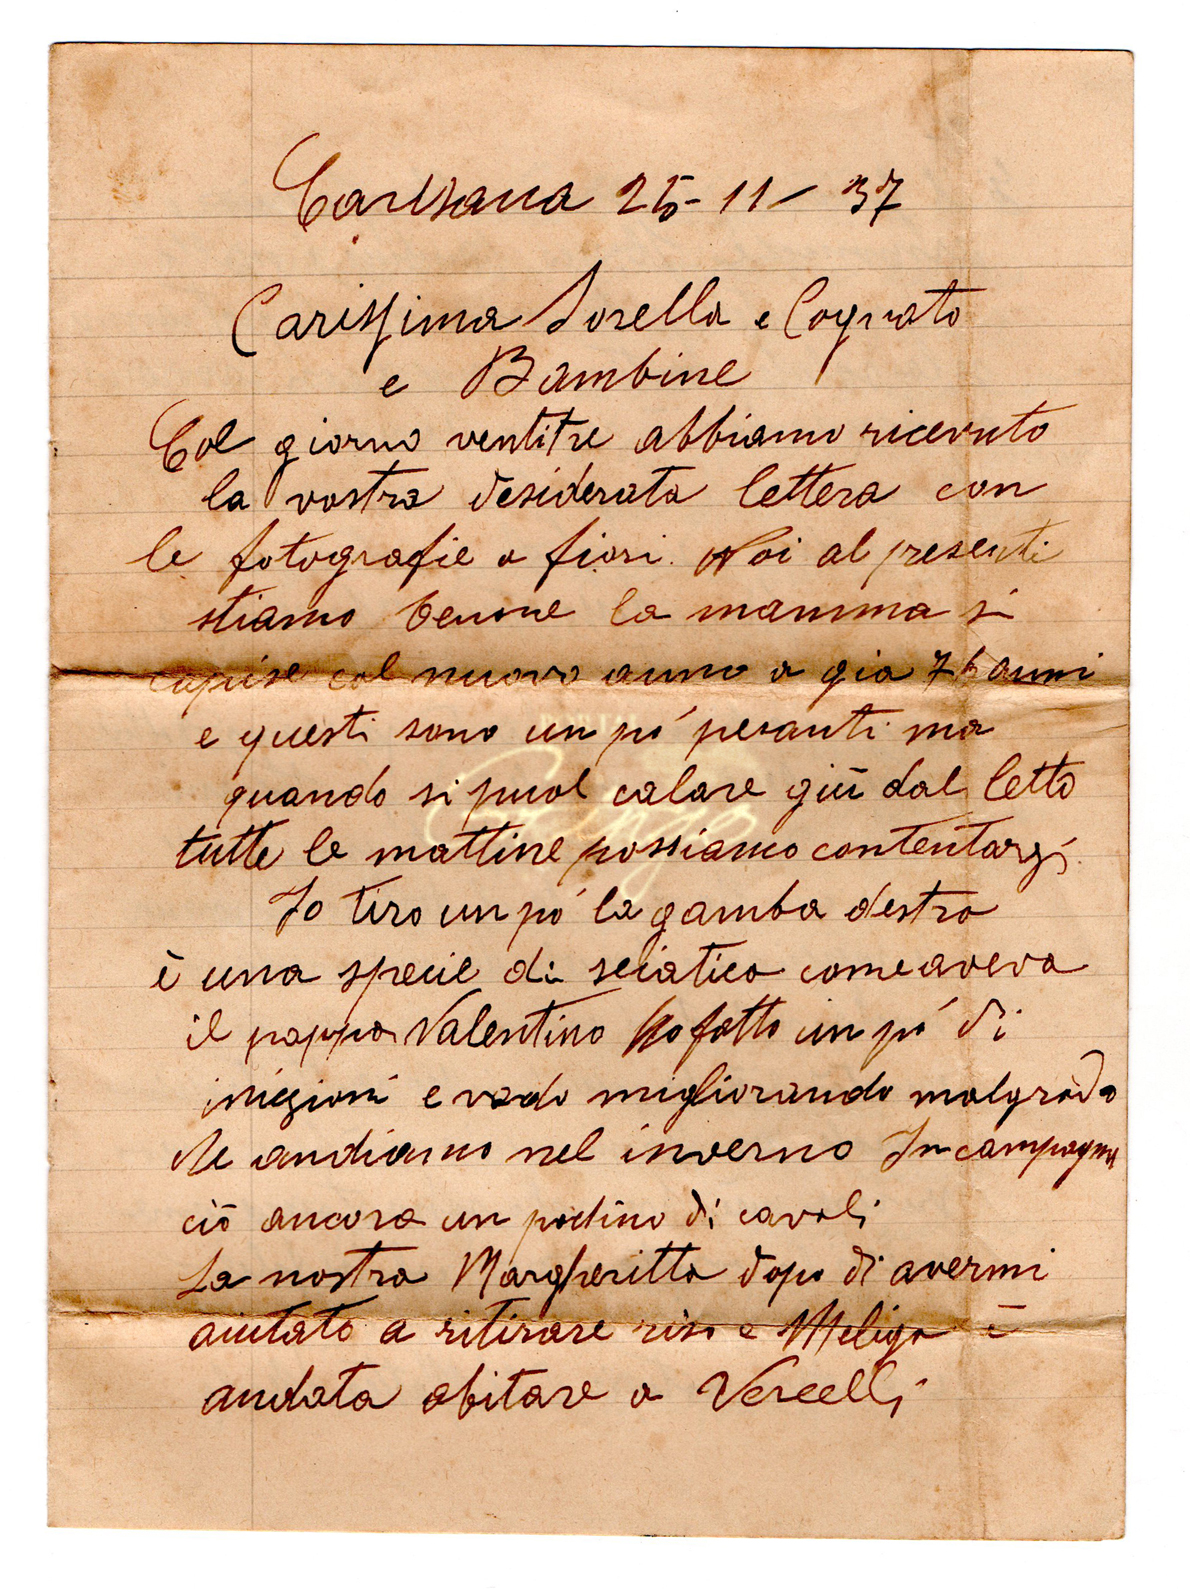 Caresana 25-11-37
Carissima Sorella e Cognato
e Bambine
Col giorno ventitre abbiamo ricevuto
la vostra desiderata lettera con
le fotografie a fiori. Noi al presenti
stiamo benone la mamma si
capise col nuovo anno a gia 76 anni
e questi sono un pó pesanti ma
quando si puol calare giù dal letto
tutte le mattine possiamo contentarsi
Io tiro un pó la gamba destra
è una specie di sciatica come aveva
il pappa Valentino ho fatto un pó di
iniezioni e vado migliorando malgrado
che andiamo nel inverno In campagna
ciò ancora un pochino di cavoli
La nostra Margheritta dopo di avermi
aiutato a ritirare riso e Meliga è
andata abitare a Vercelli